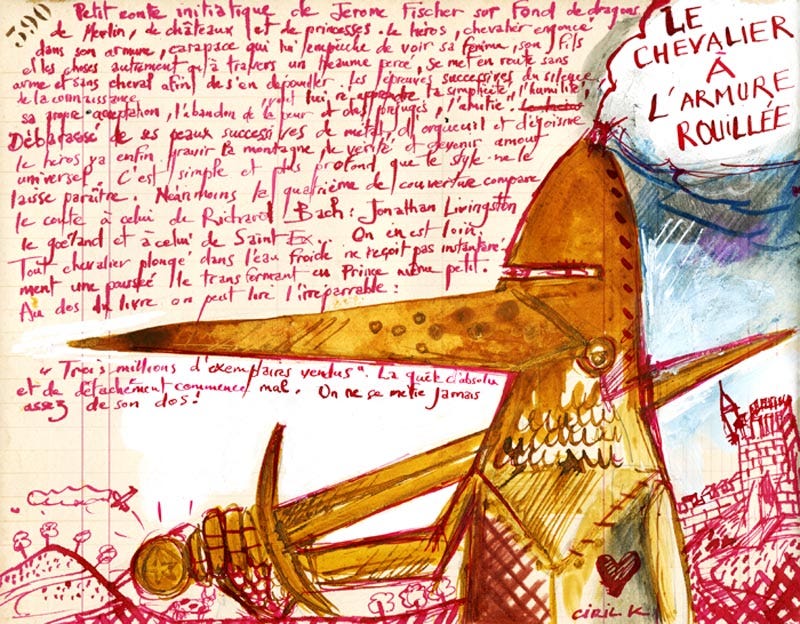 390
Petit conte initiatique de Jerome Fischer sur fond de dragons,
de Merlin, de châteaux et de princesses. Le héros, chevalier engoncé
dans son armure, carapace qui lui empêche de voir sa femme, son fils
et les choses autrement qu'à travers un heaume percé, se met en route sans
arme et sans cheval afin de s'en dépouiller. Les épreuves successives du silence,
de la connaissance, vont lui ré apprendre la simplicité, l'humilité,
sa propre acceptation, l'abandon de la peur et des préjugés, l'amitié.
Débarassé de ses peaux successives de métal, d'orgueuil et d'égoisme
le héros va enfin gravir la montagne de vérité et devenir amour
universel. C'est simple et plus profond que le style ne le
laisse paraître. Néanmoins la quatrième de couverture compare
le conte à celui de Richard Bach : Jonathan Livingston
le goéland et à celui de Saint Ex... On en est loin.
Tout chevalier plongé dans l'eau froide ne reçoit pas instantané-
ment une poussée le transformant en Prince même petit.
Au dos du livre on peut lire l'irréparable :
"Trois millions d'exemplaires vendus". La quête d'absolu
et de détachement commence mal. On ne se méfie jamais
assez de son dos !
LE
CHEVALIER
À
L'ARMURE
ROUILLÉE
CIRIL K